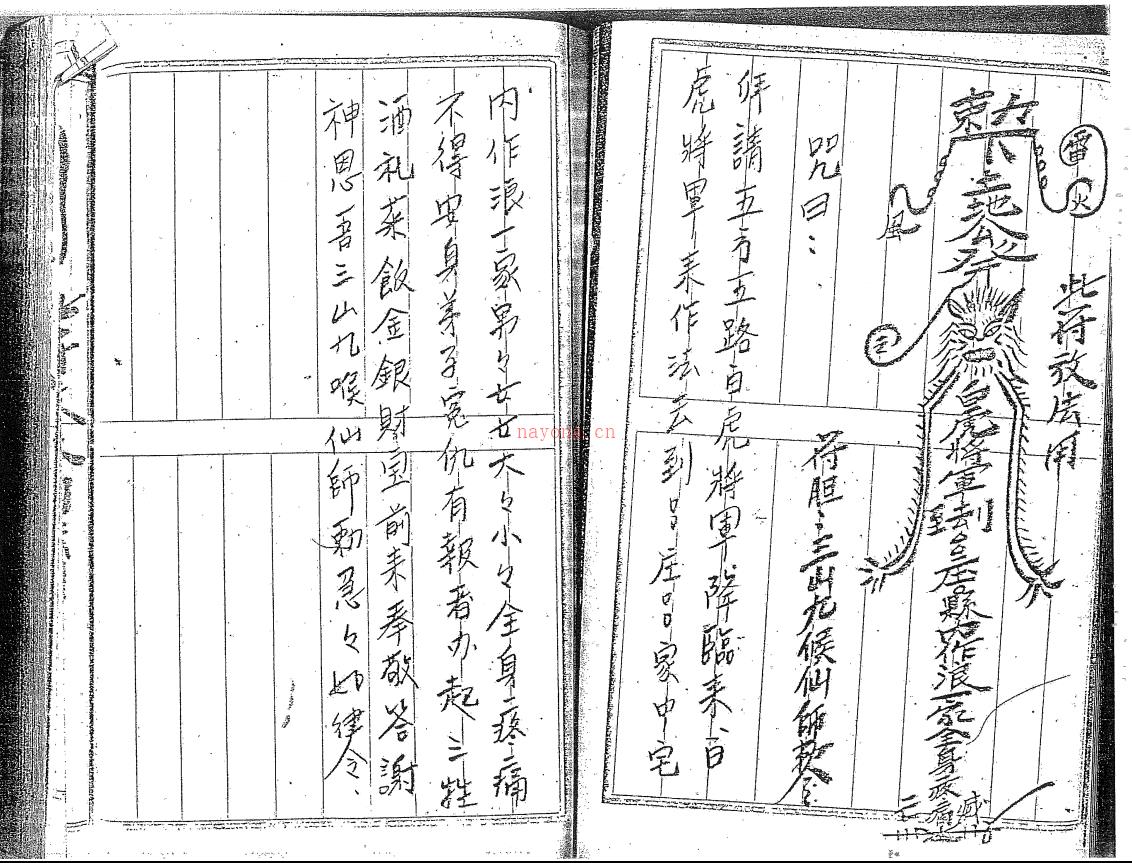 此符放法用
雷
火
風
土地公
白虎將軍到呂庄呂縣內作浪一家全身疼痛
符胆：三山九候仙師敕令
咒曰：
拜請五方五路白虎將軍降臨來白
虎將軍來作法去到呂庄呂家中宅
內作浪一家男々女女大々小々全身疼痛
不得安身弟子冤仇有報者办起三牲
酒礼菜飯金銀財宝前來奉敬答謝
神恩吾三山九喉仙師勅急々如律令
nayona.cn